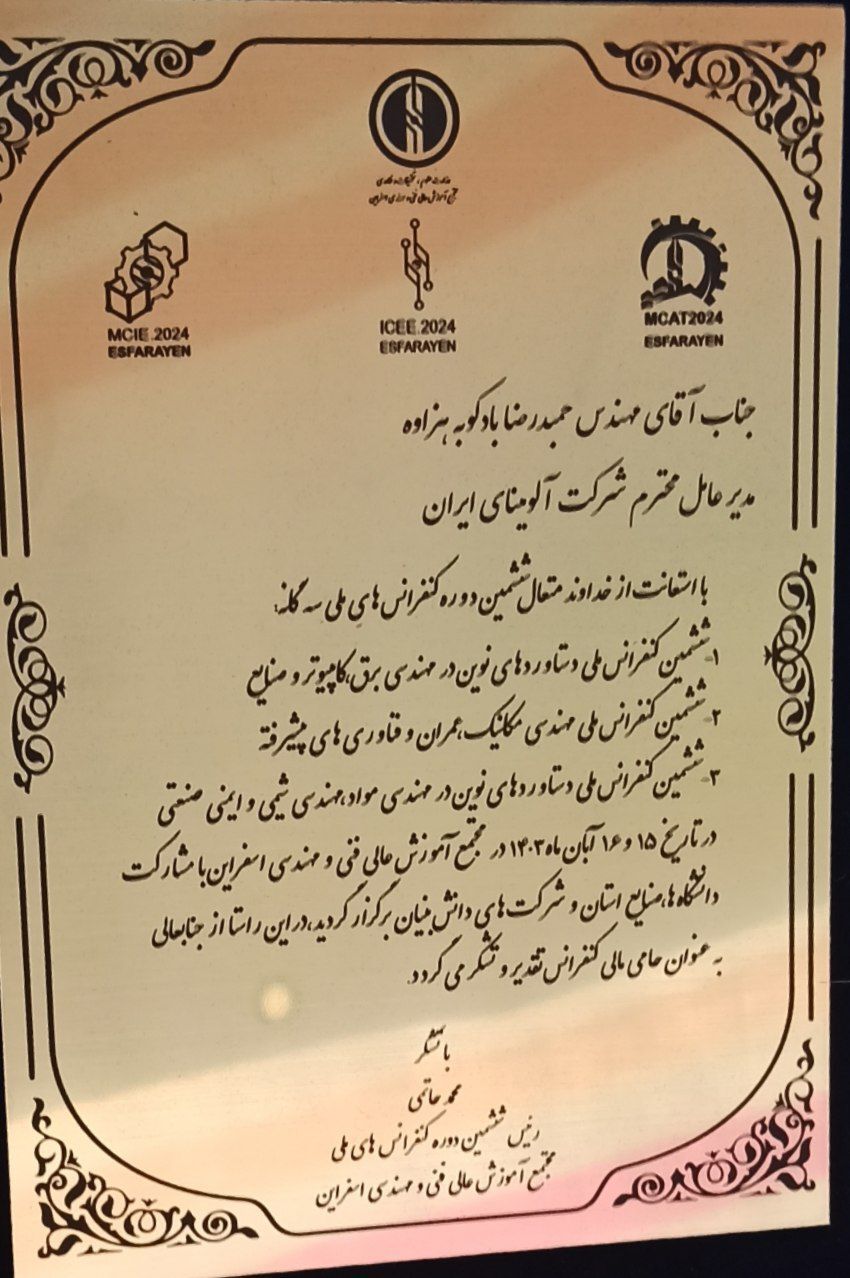 وزارت علوم، تحقیقات و فناوری
مجتمع آموزش عالی فنی و مهندسی اسفراین
MCIE.2024
ESFARAYEN
ICEE.2024
ESFARAYEN
MCAT2024
ESFARAYEN
جناب آقای مهندس حمیدرضا بادکوبه هزاوه
مدیر عامل محترم شرکت آلومینای ایران
با استعانت از خداوند متعال ششمین دوره کنفرانس های ملی سه گانه:
۱- ششمین کنفرانس ملی دستاوردهای نوین در مهندسی برق،کامپیوتر و صنایع
۲- ششمین کنفرانس ملی مهندسی مکانیک،عمران و فناوری های پیشرفته
۳- ششمین کنفرانس ملی دستاوردهای نوین در مهندسی مواد،مهندسی شیمی و ایمنی صنعتی
در تاریخ ۱۵ و ۱۶ آبان ماه ۱۴۰۳ در مجتمع آموزش عالی فنی و مهندسی اسفراین با مشارکت
دانشگاه ها،صنایع استان و شرکت های دانش بنیان برگزار گردید،در این راستا از جنابعالی
به عنوان حامی مالی کنفرانس تقدیر و تشکر می گردد.
با تشکر
محمد حاتمی
رئیس ششمین دوره کنفرانس های ملی
مجتمع آموزش عالی فنی و مهندسی اسفراین